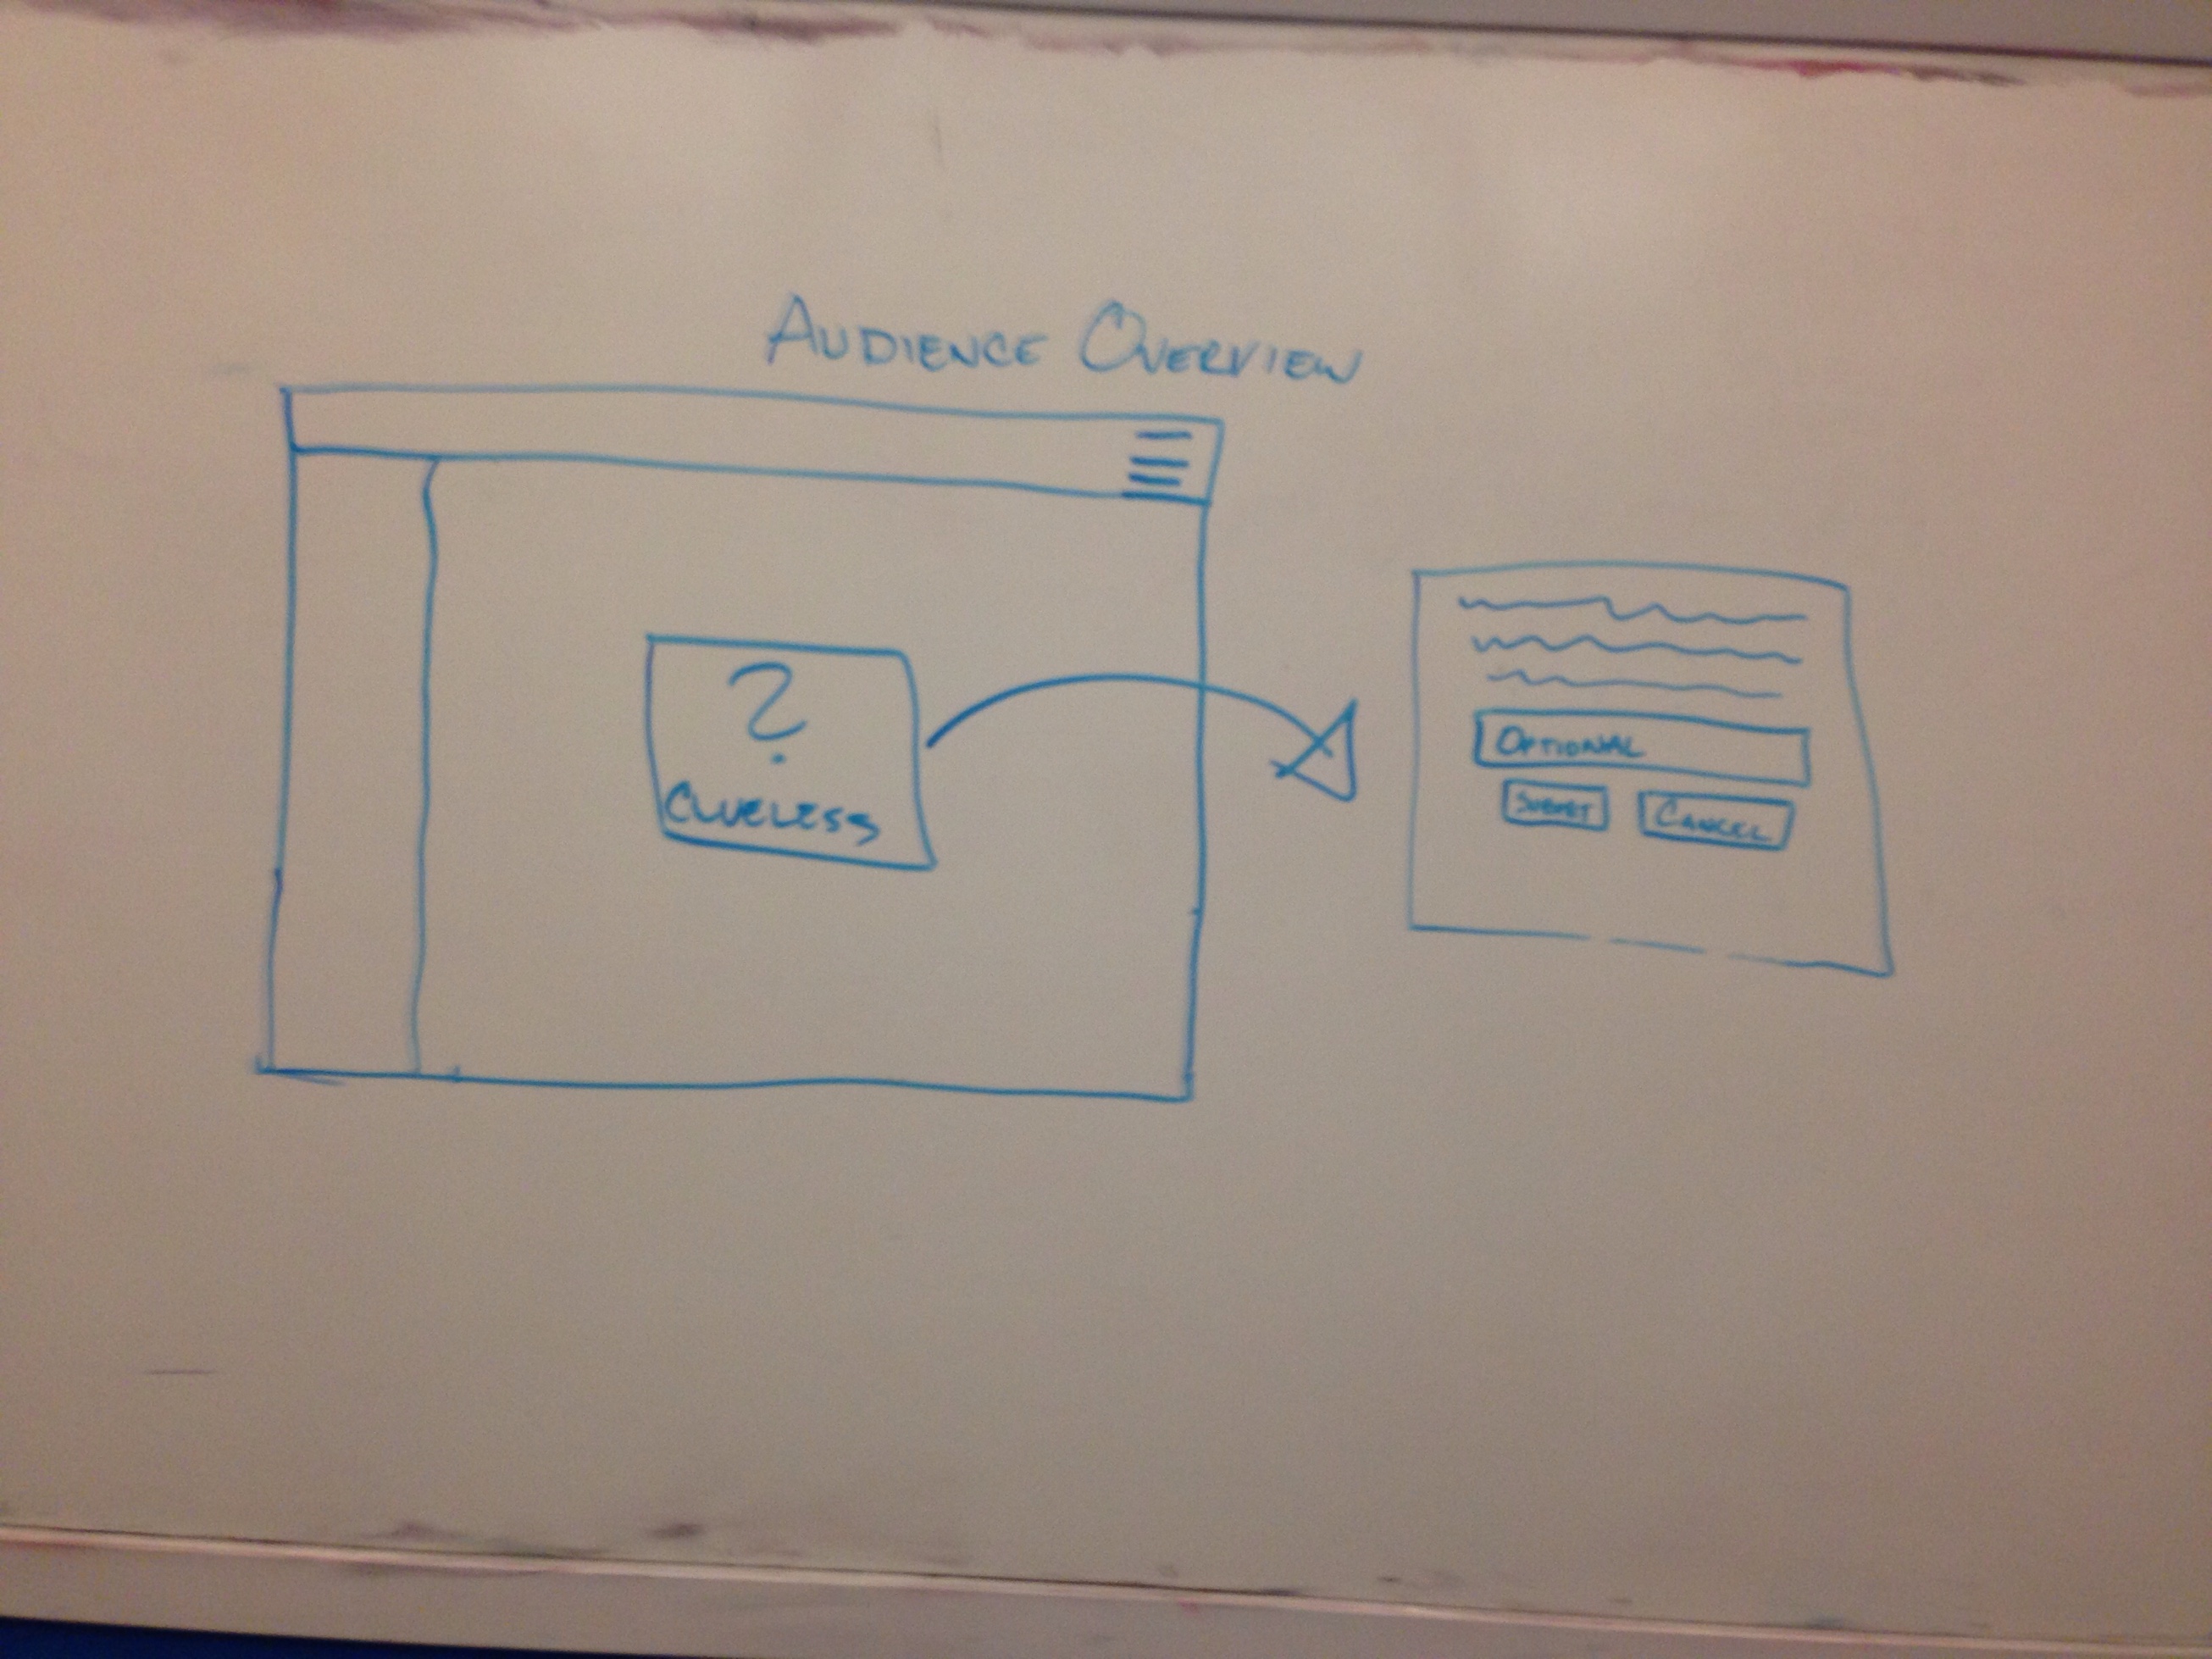 AUDIENCE OVERVIEW
?
CLUELESS
OPTIONAL
SUBMIT
CANCEL